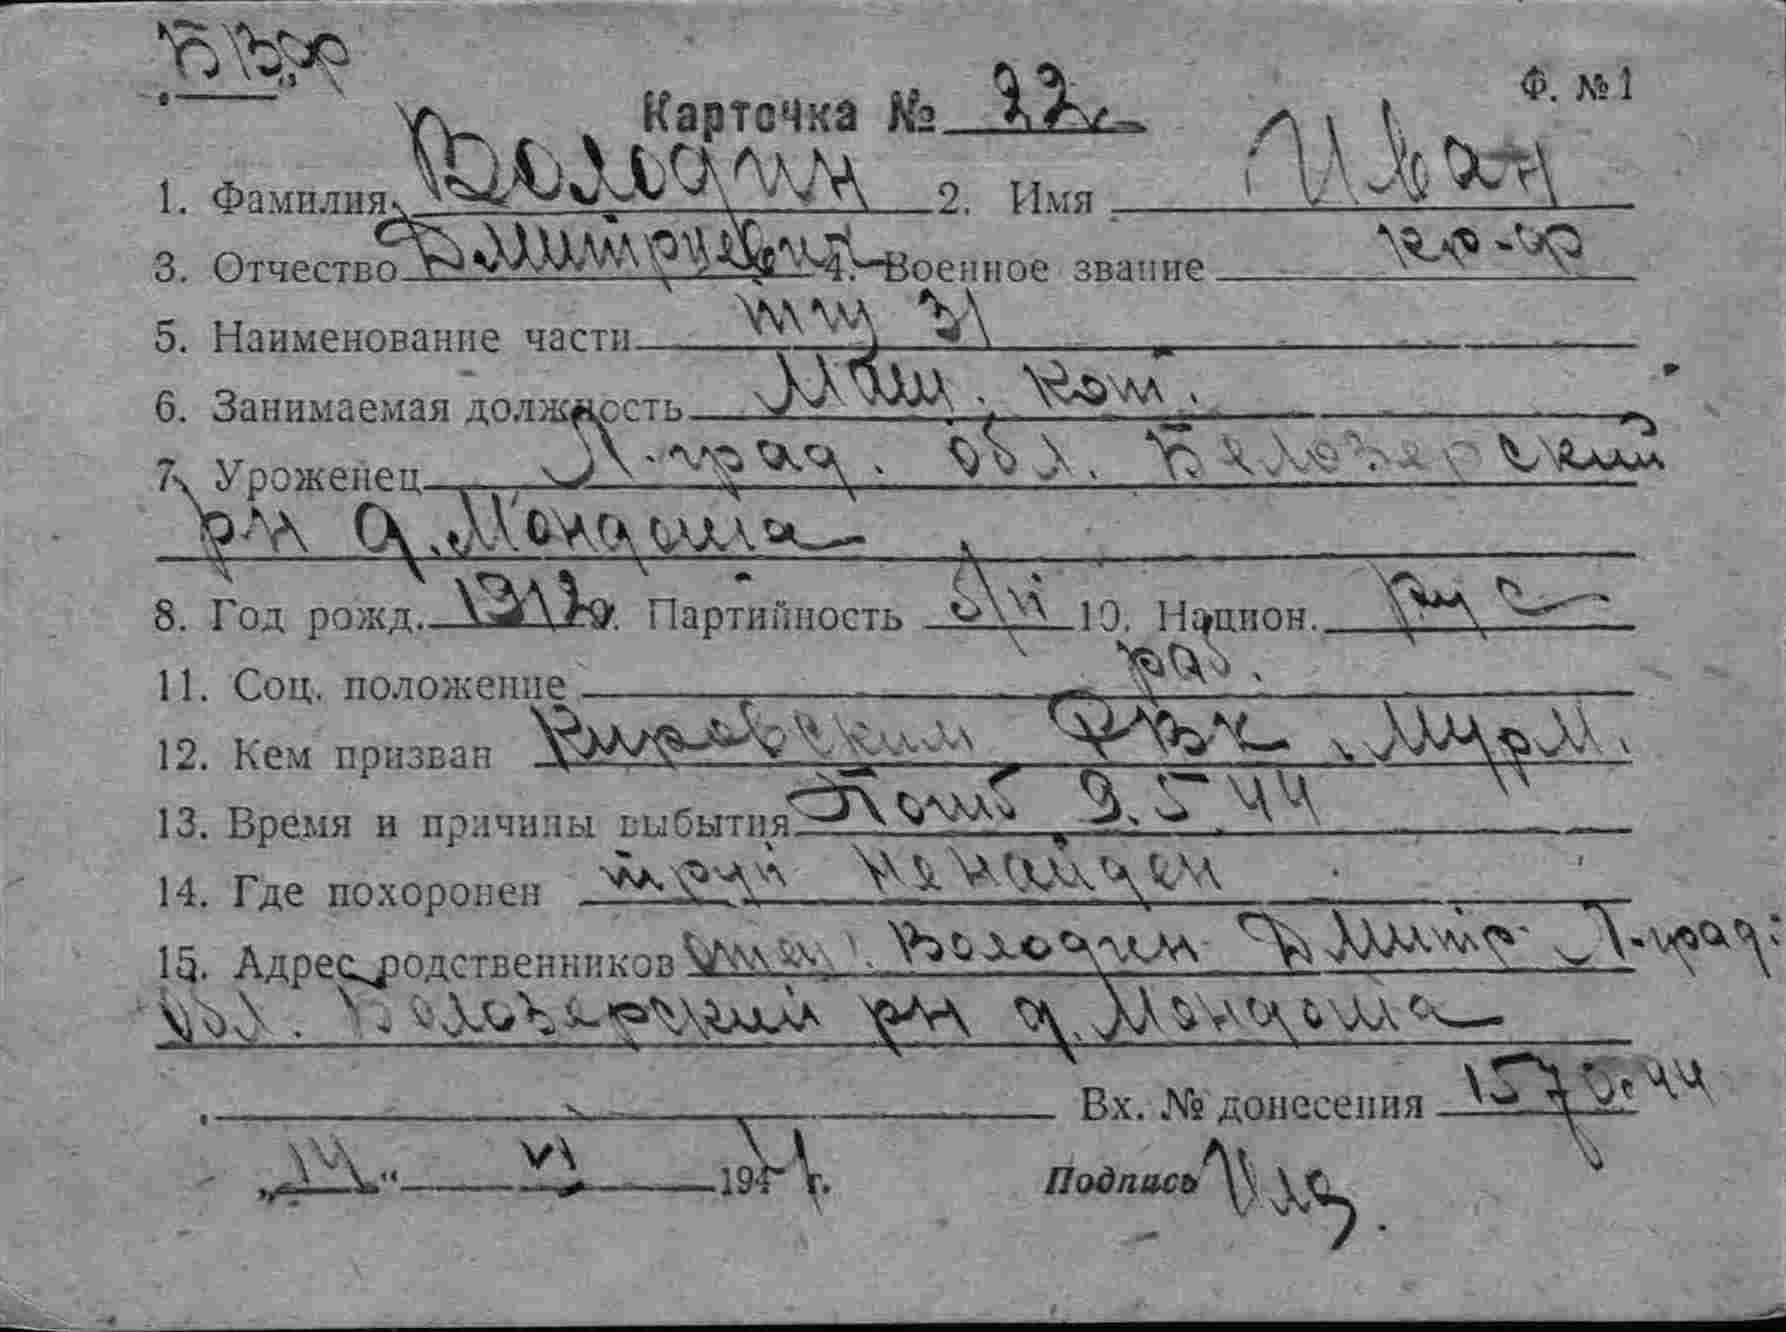 Ф. № 1
Карточка № 22
1. Фамилия Володин 2. Имя Иван
3. Отчество Дмитриевич 4. Военное звание кр-ф
5. Наименование части тщ 31
6. Занимаемая должность Маш. кот.
7. Уроженец Л-град. обл. Белозерский
рн д. Мондома
8. Год рожд. 1912 Партийность б/п 10. Национ. рус
11. Соц. положение раб.
12. Кем призван Кировским РВК, Мурм.
13. Время и причины выбытия Погиб 9.5.44
14. Где похоронен труп ненайден
15. Адрес родственников отец: Володин Дмитр Л-град.
обл. Белозерский рн д. Мондома
Вх. № донесения 157 44
„14“ VI 1944 г. Подпись